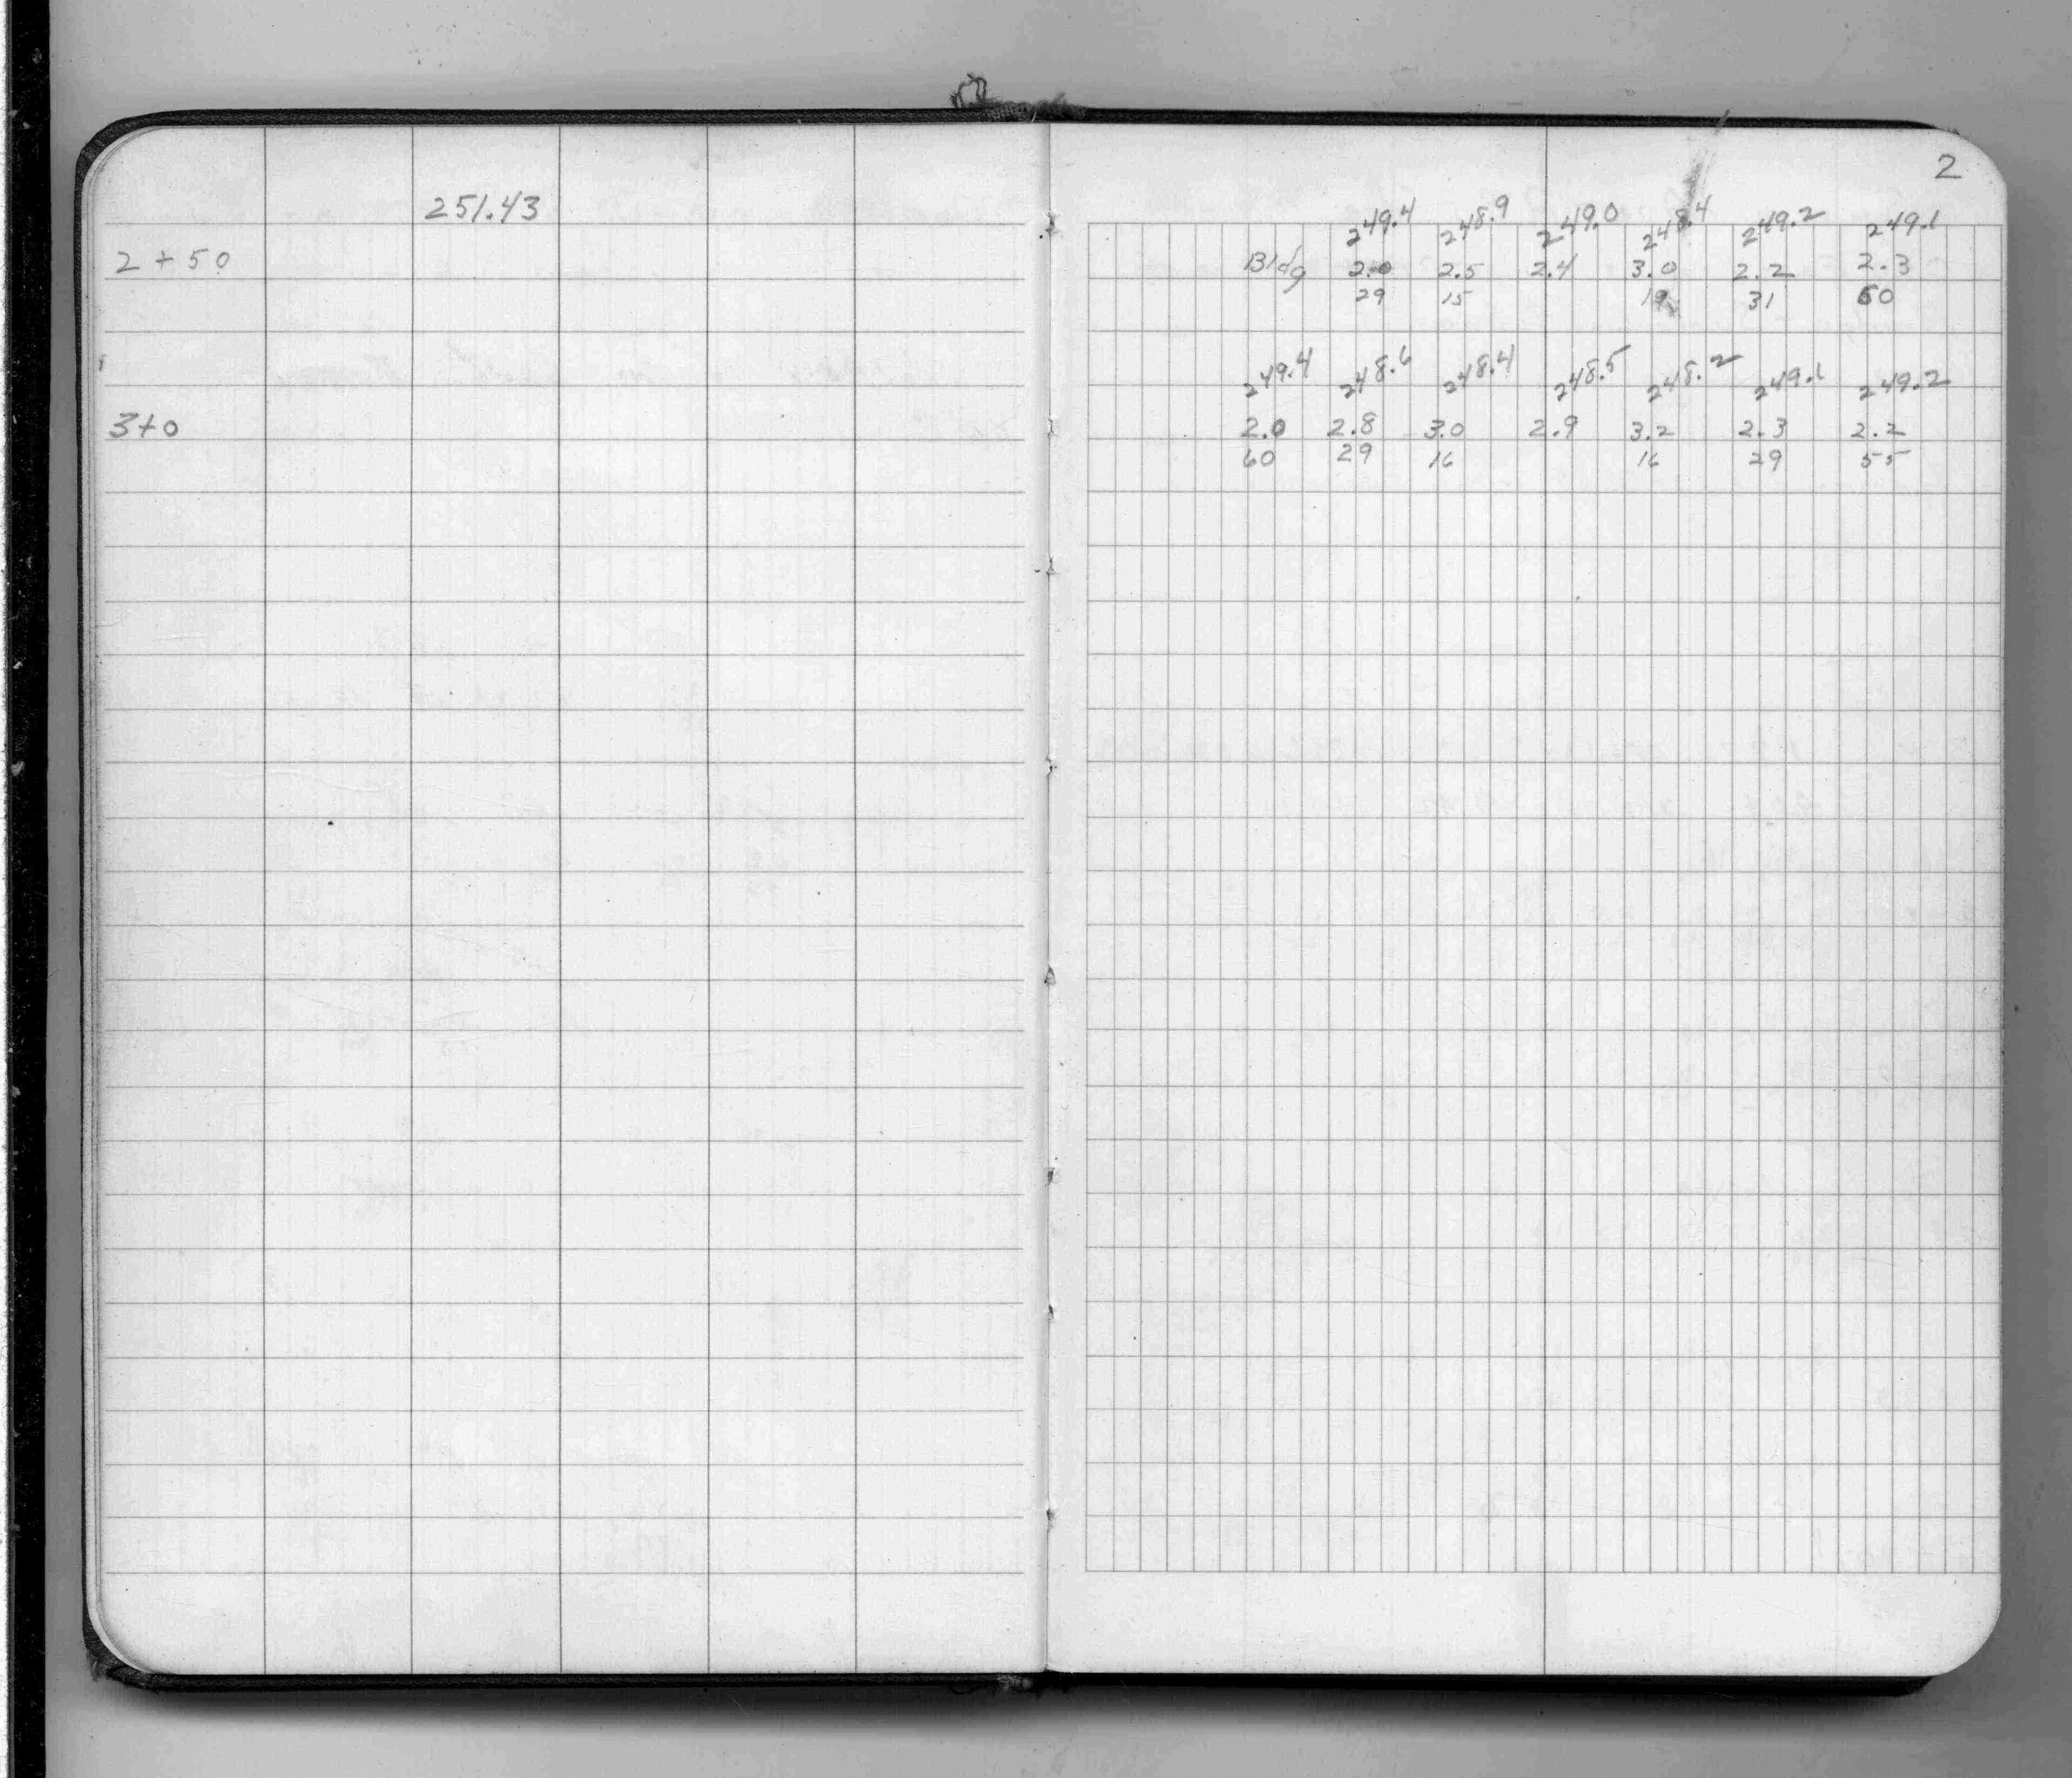 251.43
2+50
3+0
2
249.4 248.9 249.0 248.4 249.2 249.1
Bldg 2.0 2.5 2.4 3.0 2.2 2.3
29 15 19 31 60
249.4 248.6 248.4 248.5 248.2 249.1 249.2
2.0 2.8 3.0 2.9 3.2 2.3 2.2
60 29 16 16 29 55